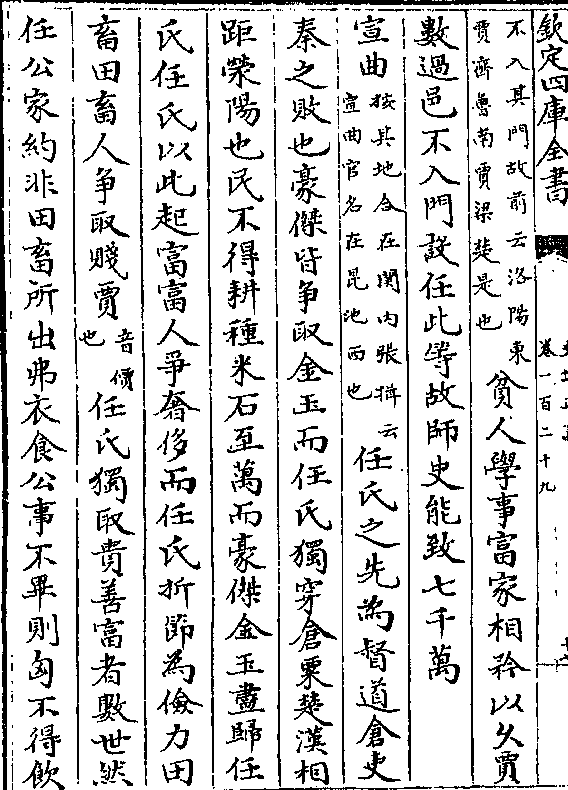 欽定四庫全書
卷一百二十九
不入其門故前云洛陽東
賈齊魯南賈梁楚是也
貧人學事富家相矜以久賈
數過邑不入門設任此等故師史能致七千萬
宣曲
按其地合在關内張揖云
宣曲官名在昆池西也
任氏之先為督道倉吏
秦之敗也豪傑皆争取金玉而任氏獨穿倉粟楚漢相
距滎陽也民不得耕種米石至萬而豪傑金玉盡歸任
氏任氏以此起富富人爭奢侈而任氏折節為儉力田
畜田畜人爭取賤賈
音價
也
任氏獨取貴善富者數世然
任公家約非田畜所出弗衣食公事不畢則身不得飲